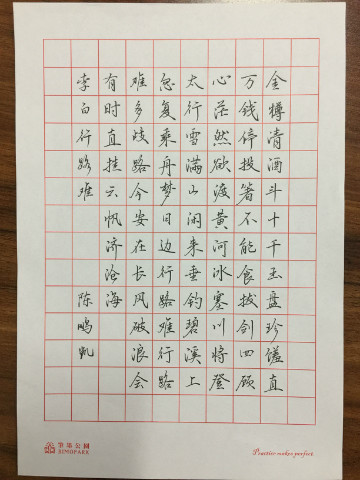 金樽清酒斗十千玉盘珍馐直
万钱停投箸不能食拔剑四顾
心茫然欲渡黄河冰塞川将登
太行雪满山闲来垂钓碧溪上
忽复乘舟梦日边行路难行路
难多歧路今安在长风破浪会
有时直挂云帆济沧海
李白行路难 陈鹏凯
筆墨公園
BIMOPARK
Practice makes perfect